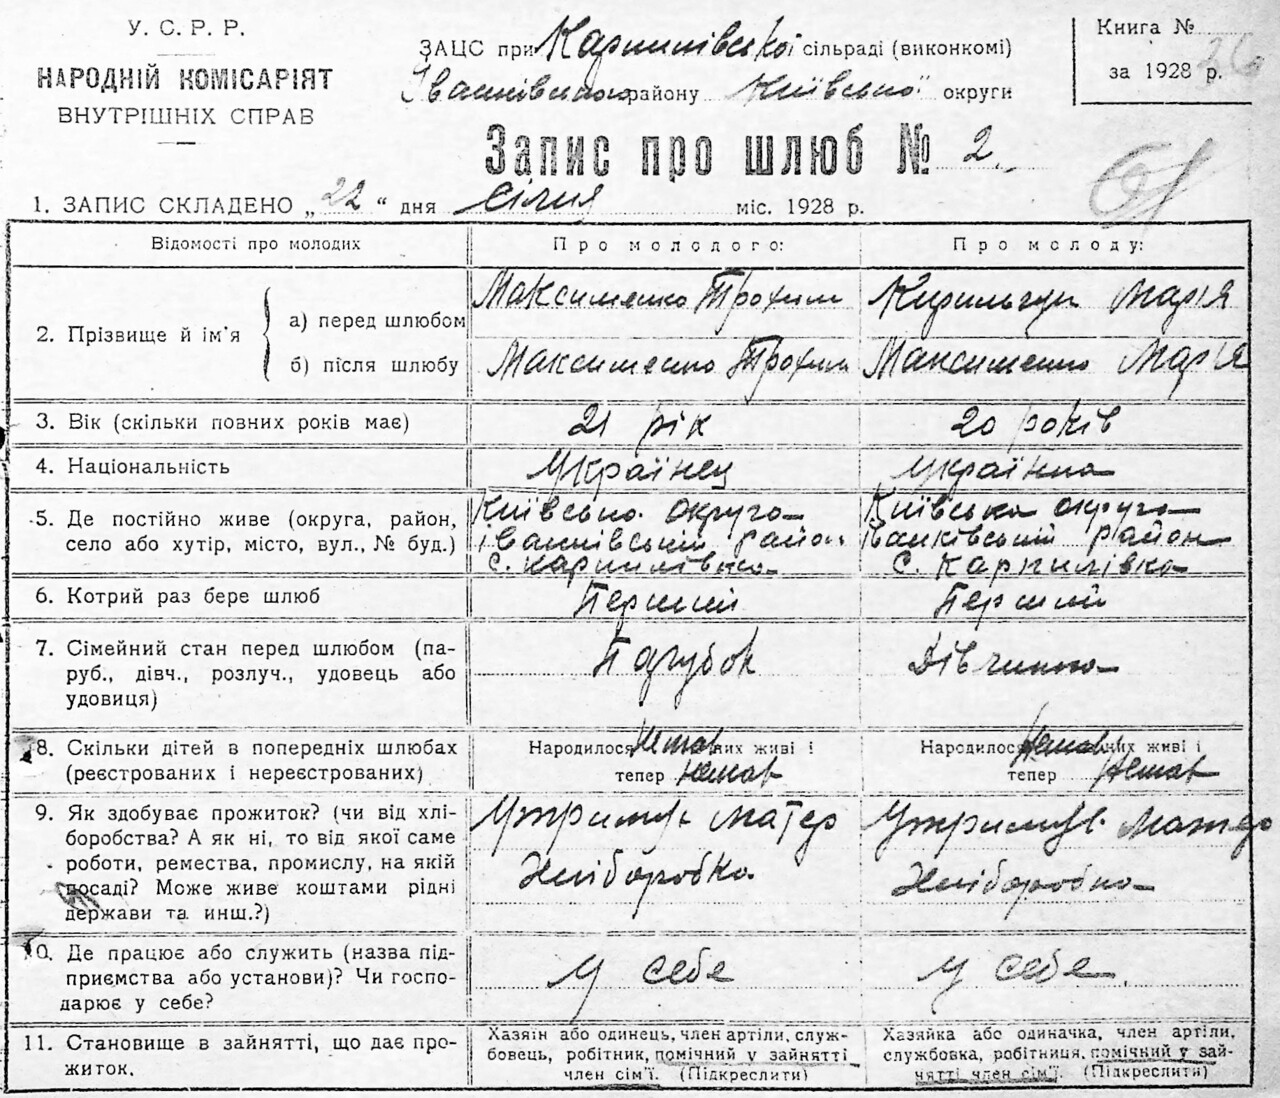 У. С. Р. Р.
НАРОДНІЙ КОМІСАРІЯТ
ВНУТРІШНІХ СПРАВ
ЗАЦС при Карпилівської сільраді (виконкомі)
Іванківського району Київської округи
Книга №
за 1928 р.
26
Запис про шлюб № 2.
1. ЗАПИС СКЛАДЕНО „22" дня січня міс. 1928 р.
Відомості про молодих
Про молодого:
Про молоду:
2. Прізвище й ім'я
а) перед шлюбом
Максименко Трохим
Марія
б) після шлюбу
Максименко Трохим
Максименко Марія
3. Вік (скільки повних років має)
21 рік
20 років
4. Національність
Українец
Українка
5. Де постійно живе (округа, район,
село або хутір, місто, вул., № буд.)
Київська округа
іванківський район
с. карпилівка
Київська округа
іванківський район
с. Карпилівка
6. Котрий раз бере шлюб
Перший
Перший
7. Сімейний стан перед шлюбом (па-
руб., дівч., розлуч., удовець або
удовиця)
Парубок
Дівчинка
8. Скільки дітей в попередніх шлюбах
(реєстрованих і нереєстрованих)
Народилося Немає них живі і
тепер Немає
Народилося Немає них живі і
тепер Немає
9. Як здобуває прожиток? (чи від хлі-
боробства? А як ні, то від якої саме
роботи, ремества, промислу, на якій
посаді? Може живе коштами рідні
держави та инш.?)
Утримує матер
Хліборобка
Утримує
Хліборобка
10. Де працює або служить (назва під-
приємства або установи)? Чи госпо-
дарює у себе?
у себе
у себе
11. Становище в зайнятті, що дає про-
житок.
Хазяїн або одинець, член артіли, служ-
бовець, робітник, помічний у зайнятті
член сім'ї. (Підкреслити)
Хазяйка або одиначка, член артіли,
службовка, робітниця, помічний у зай-
нятті член сім'ї. (Підкреслити)